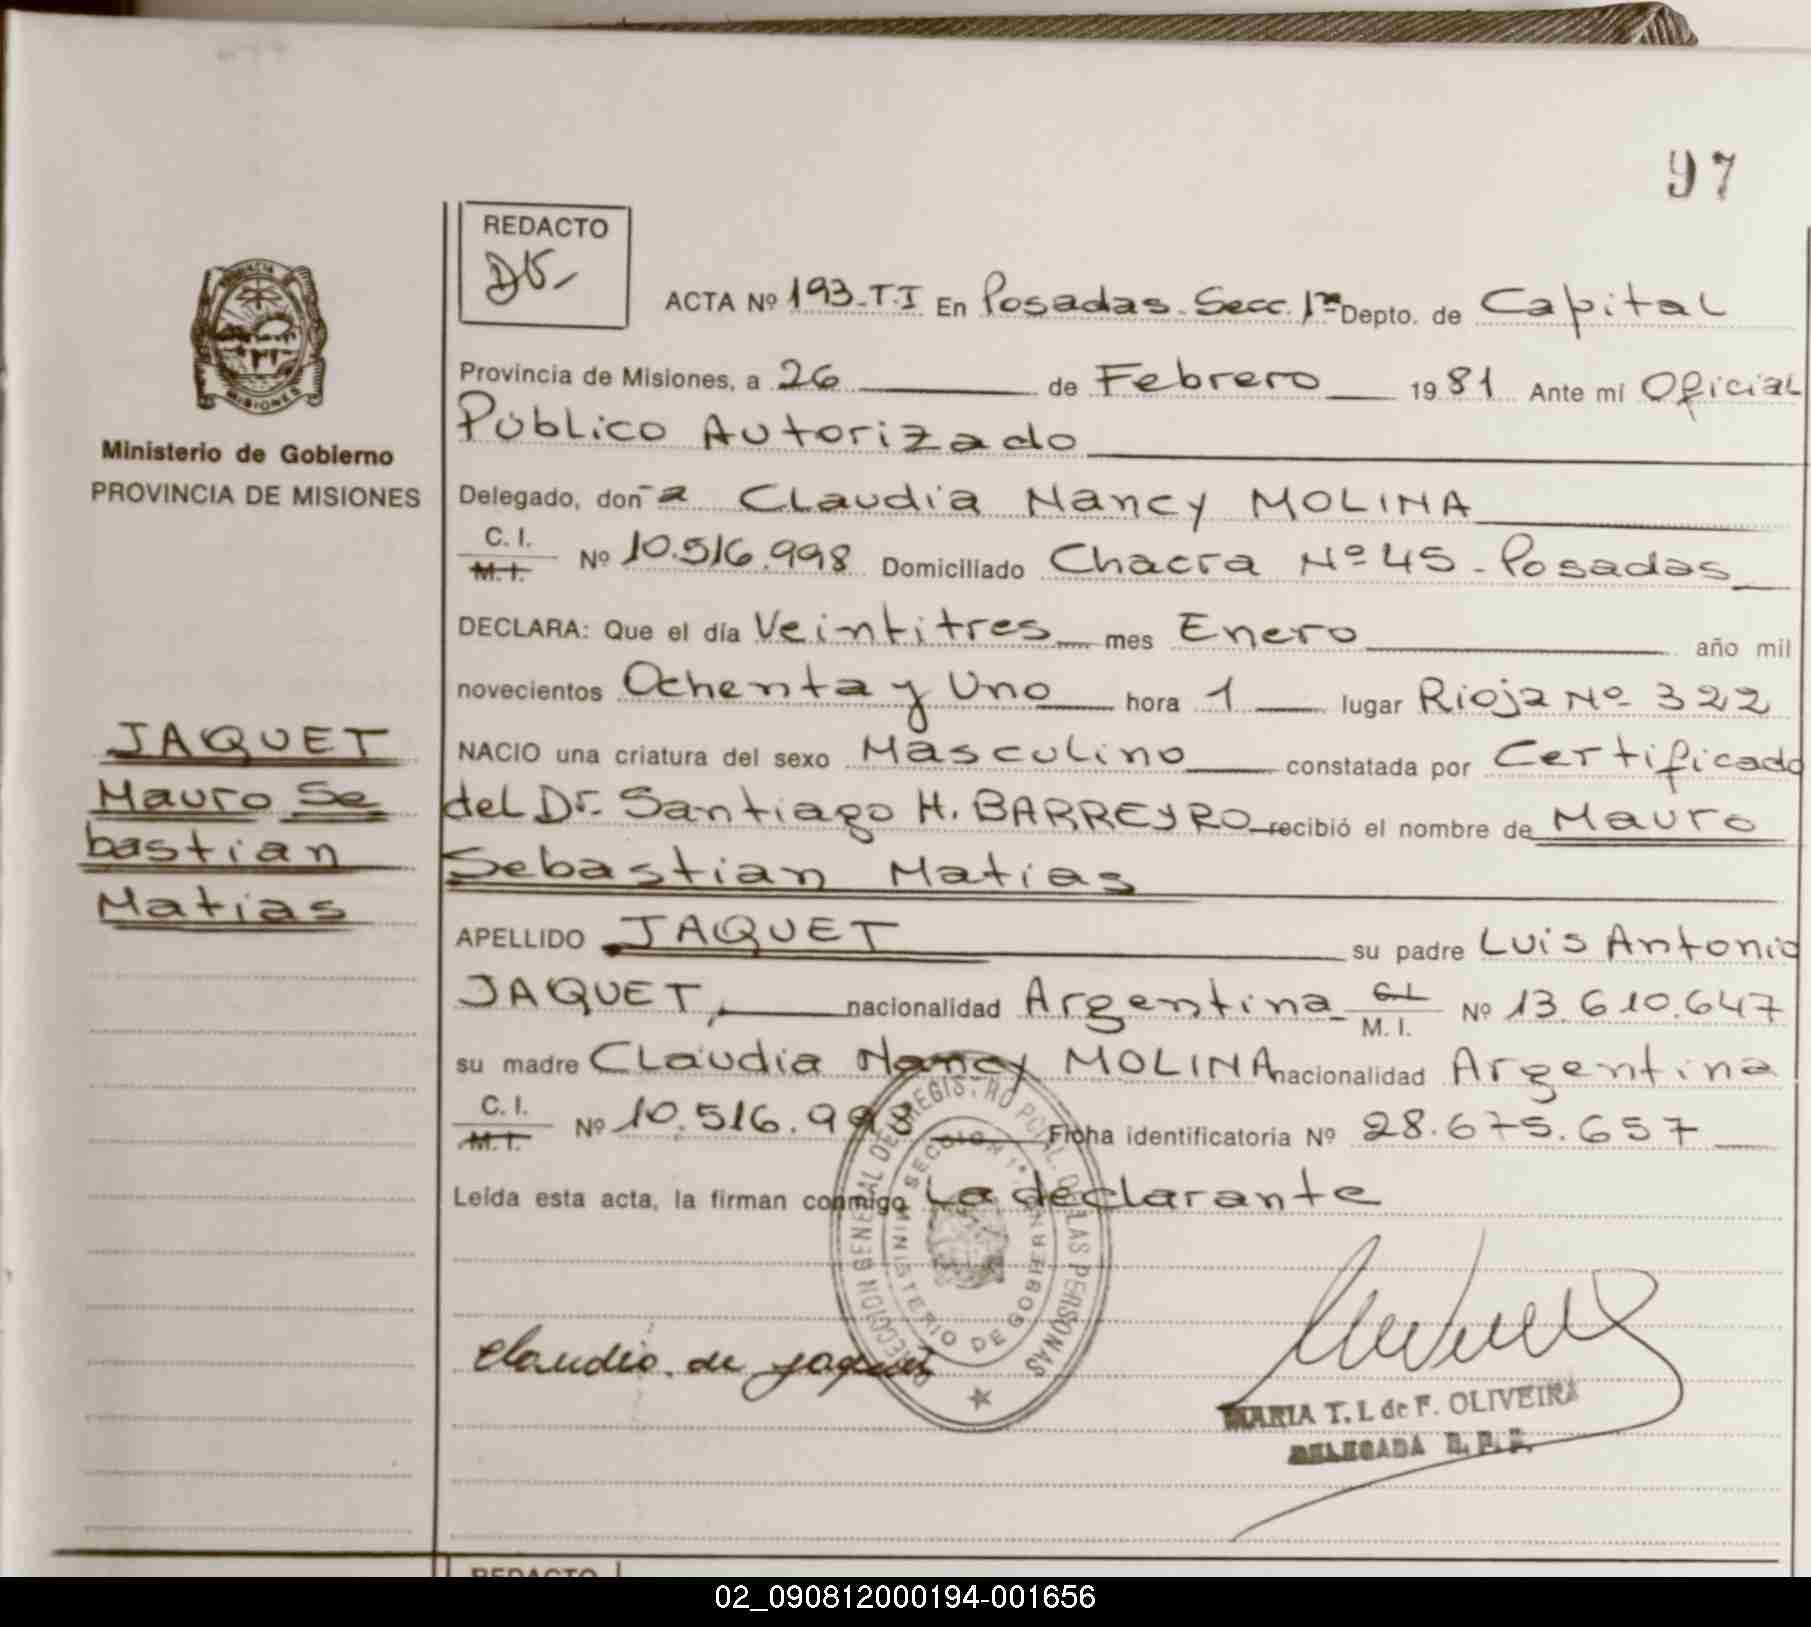 97
REDACTO
ACTA Nº 193-T.I En Posadas. Secc. 1ª Depto. de Capital
Provincia de Misiones, a 26 de Febrero 1981 Ante mí Oficial
Público Autorizado
Ministerio de Gobierno
PROVINCIA DE MISIONES
Delegado, don a Claudia Nancy MOLINA
C. I.
M. I. Nº 10.516.998 Domiciliado Chacra Nº 45 - Posadas
DECLARA: Que el día Veintitres mes Enero año mil
novecientos Ochenta y Uno hora 1 lugar Rioja Nº 322
NACIO una criatura del sexo Masculino constatada por Certificado
del Dr. Santiago H. BARREYRO recibió el nombre de Mauro
Sebastian Matias
JAQUET
Mauro Se
bastian
Matias
APELLIDO JAQUET su padre Luis Antonio
JAQUET, nacionalidad Argentina C. I.
M. I. Nº 13.610.647
su madre Claudia Nancy MOLINA nacionalidad Argentina
C. I.
M. I. Nº 10.516.998 Ficha identificatoria Nº 28.675.657
Leída esta acta, la firman conmigo La declarante
DIRECCION GENERAL DEL REGISTRO PCIAL. DE LAS PERSONAS
SECCION 1ª
MINISTERIO DE GOBIERNO
Claudia. de Jaquet
MARIA T. I. de F. OLIVEIRA
DELEGADA R. P. P.
REDACTO
02_090812000194-001656